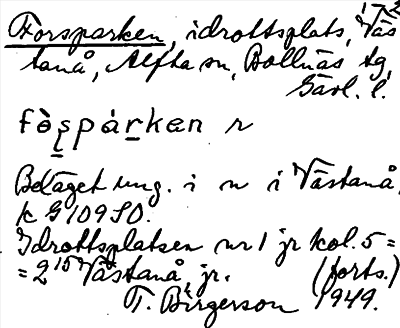 Forsparken, idrottsplats, Väs-
tanå, Alfta sn, Bollnäs tg,
Gävl. l.
fòs̱pár̠ken r
Beläget ung. i n i Västanå,
k G 109 SO.
Idrottsplatsen nr 1 jr kol. 5 =
= 2¹⁵ Västanå, jr. (forts.)
T. Birgerson 1949.